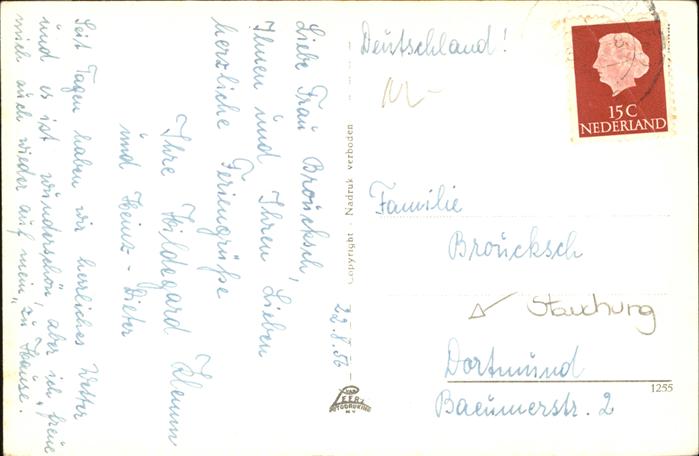 Liebe Frau Broucksch,
Ihnen und Ihren Lieben
herzliche Feriengrüße
Ihre Hildegard Klemm
und Heinz-Dieter
Seit Tagen haben wir herrliches Wetter
und es ist wunderschön, aber ich freue
mich auch wieder auf mein „zu Hause“.
22.8.56
Copyright - Nadruk verboden
VAN
LEER'S
FOTODRUKIND.
N.V.
Deutschland!
15C
NEDERLAND
Familie
Broucksch
Stauchung
Dortmund
Baeumerstr. 2
1255